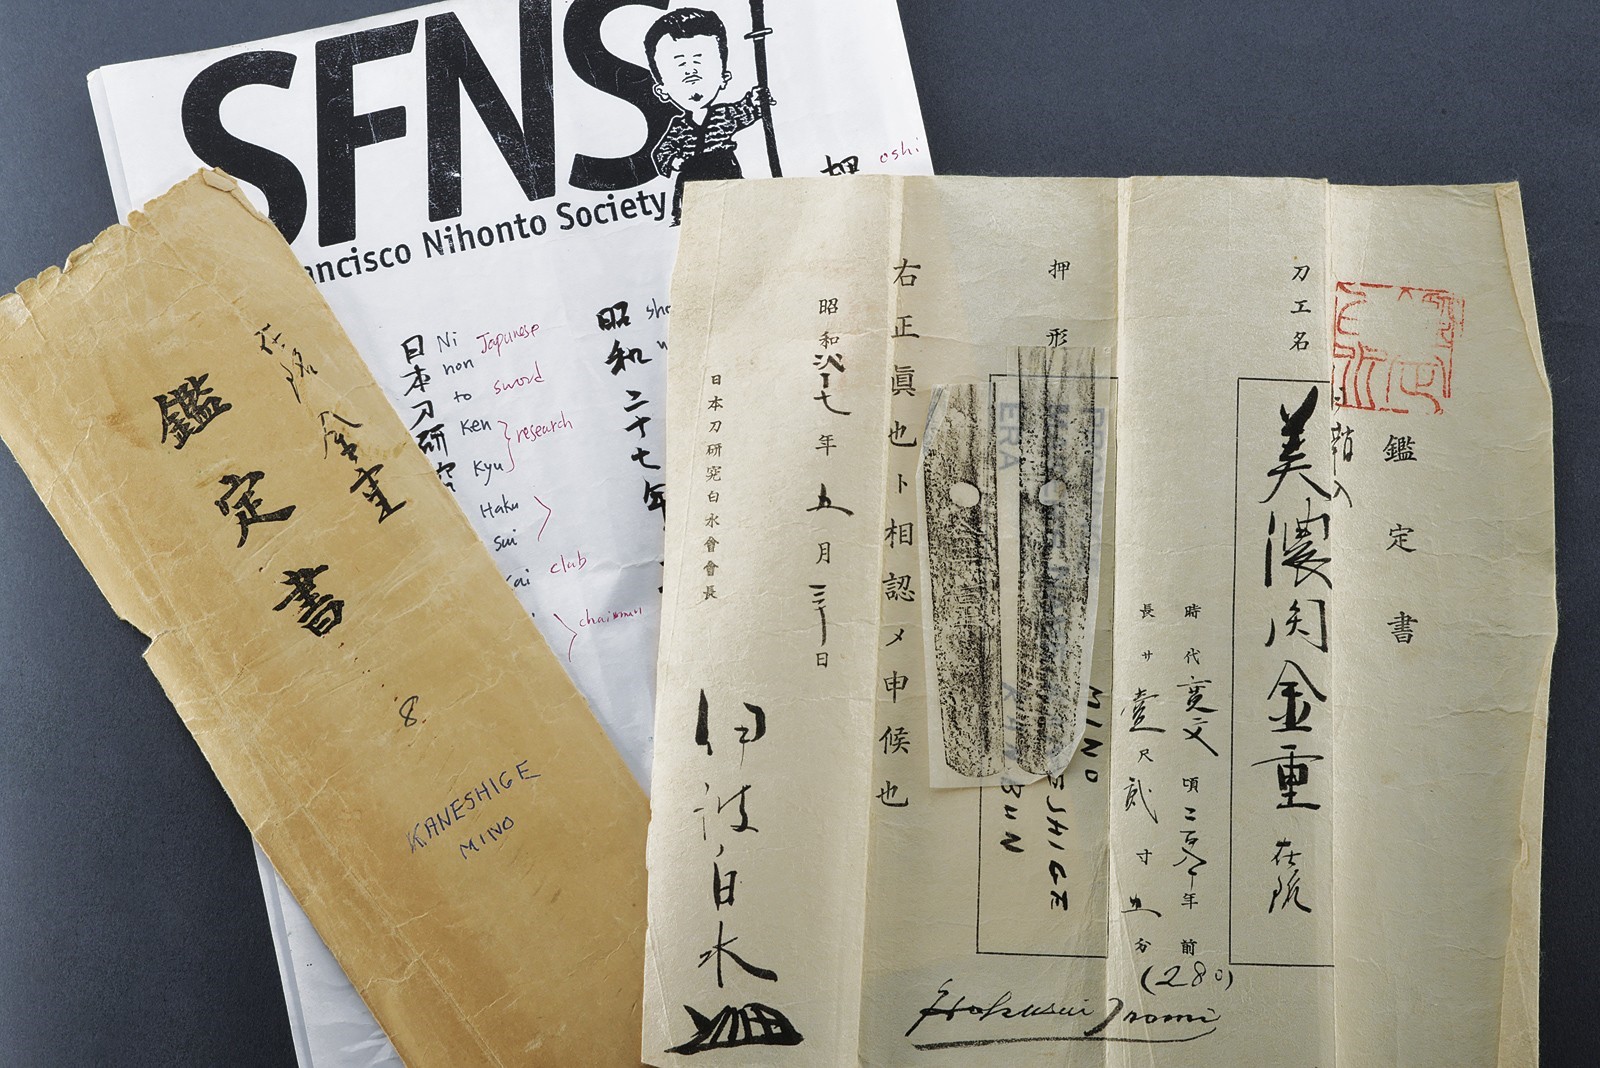 SFNS
ancisco Nihonto Society
押 oshi
昭和二十七年
日本刀研究
Ni
non
Japanese
to
sword
Ken
Kyu
research
Haku
Sui
Kai
club
chairman
鑑定書
金重
8
KANESHIGE
MINO
鑑定書
刀工名
美濃関金重
時代寛文頃
年前
(280)
長サ壹尺貳寸五分
押形
MINO
ESHIGE
BUN
ERA
右正眞也ト相認メ申候也
昭和弐十七年五月三十日
日本刀研究白水會會長
伊波白水
Hakusui Inami